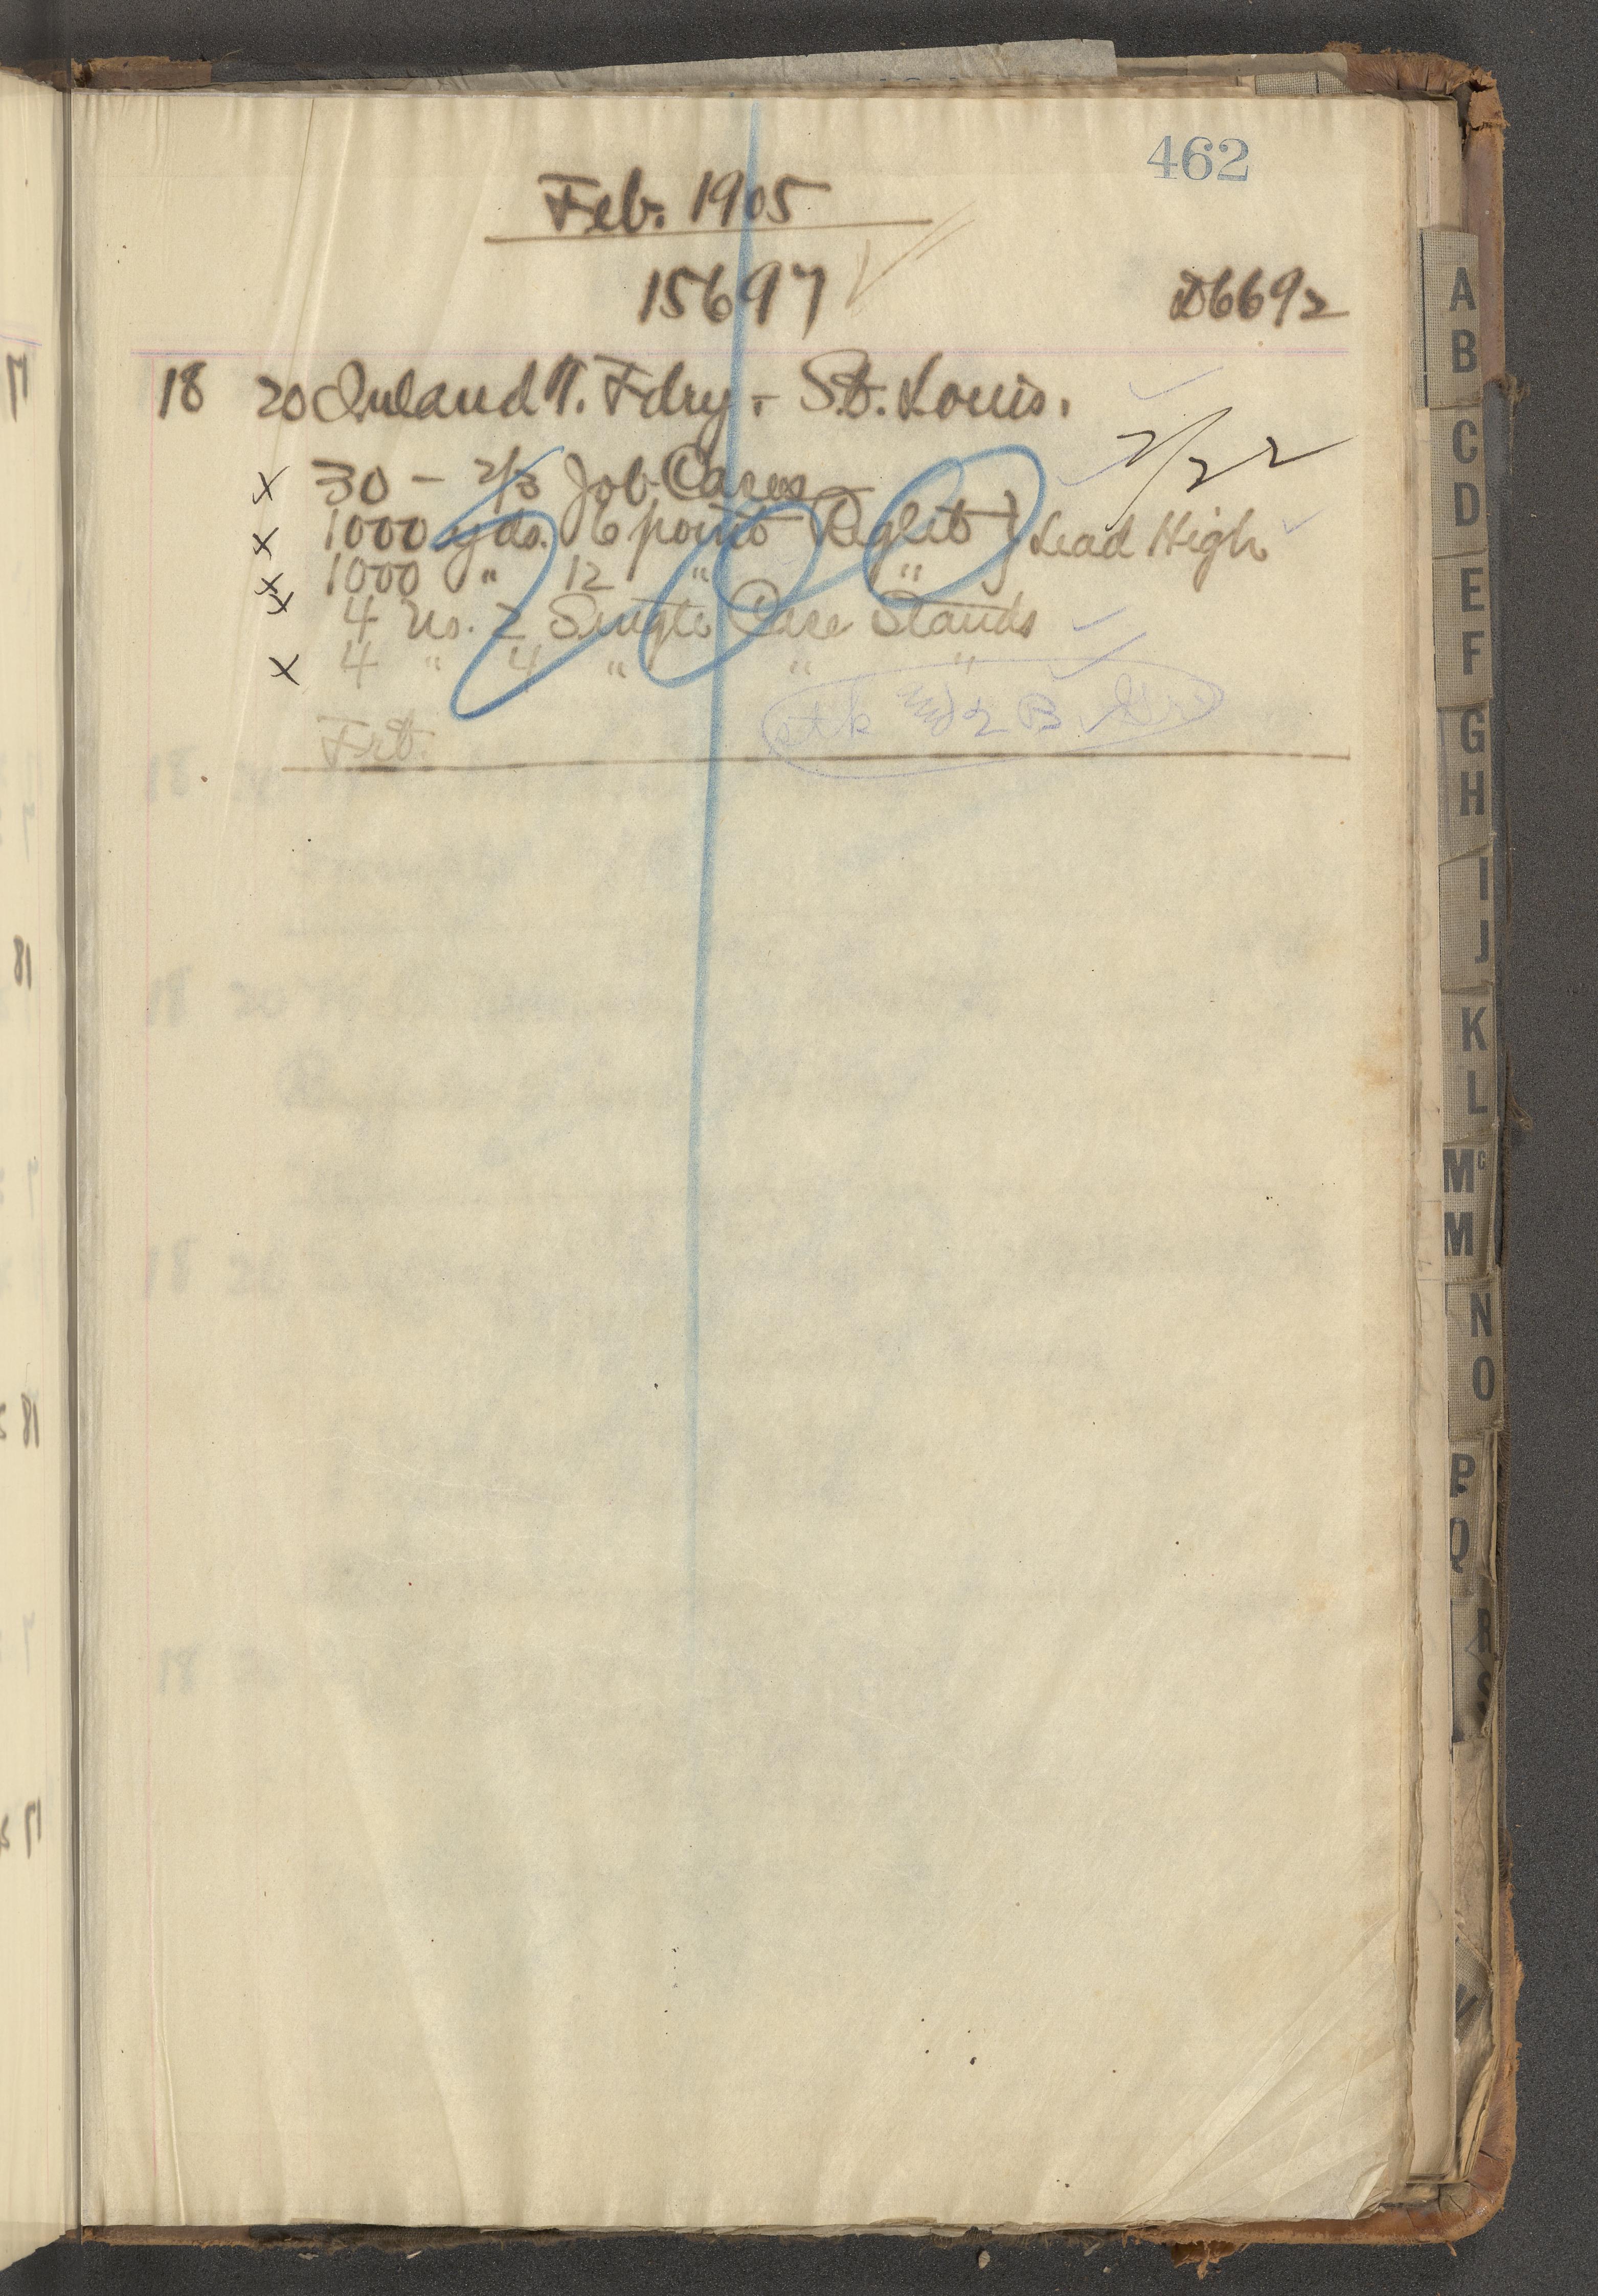 462
Feb. 1905
15697 D6692
18 20 Inland T. Fdry. - St. Louis.
2/22
x 30 - 2/3 Job Cases
x 1000 yds. 6 point Reglet } Lead High
x 1000 " 12 " "
x 4 No. 2 Single Case Stands
x 4 " 4 " " "
Frt.
stk
A
B
C
D
E
F
G
H
I
J
K
L
Mc
M
N
O
P
Q
R
S
17
18
18
17